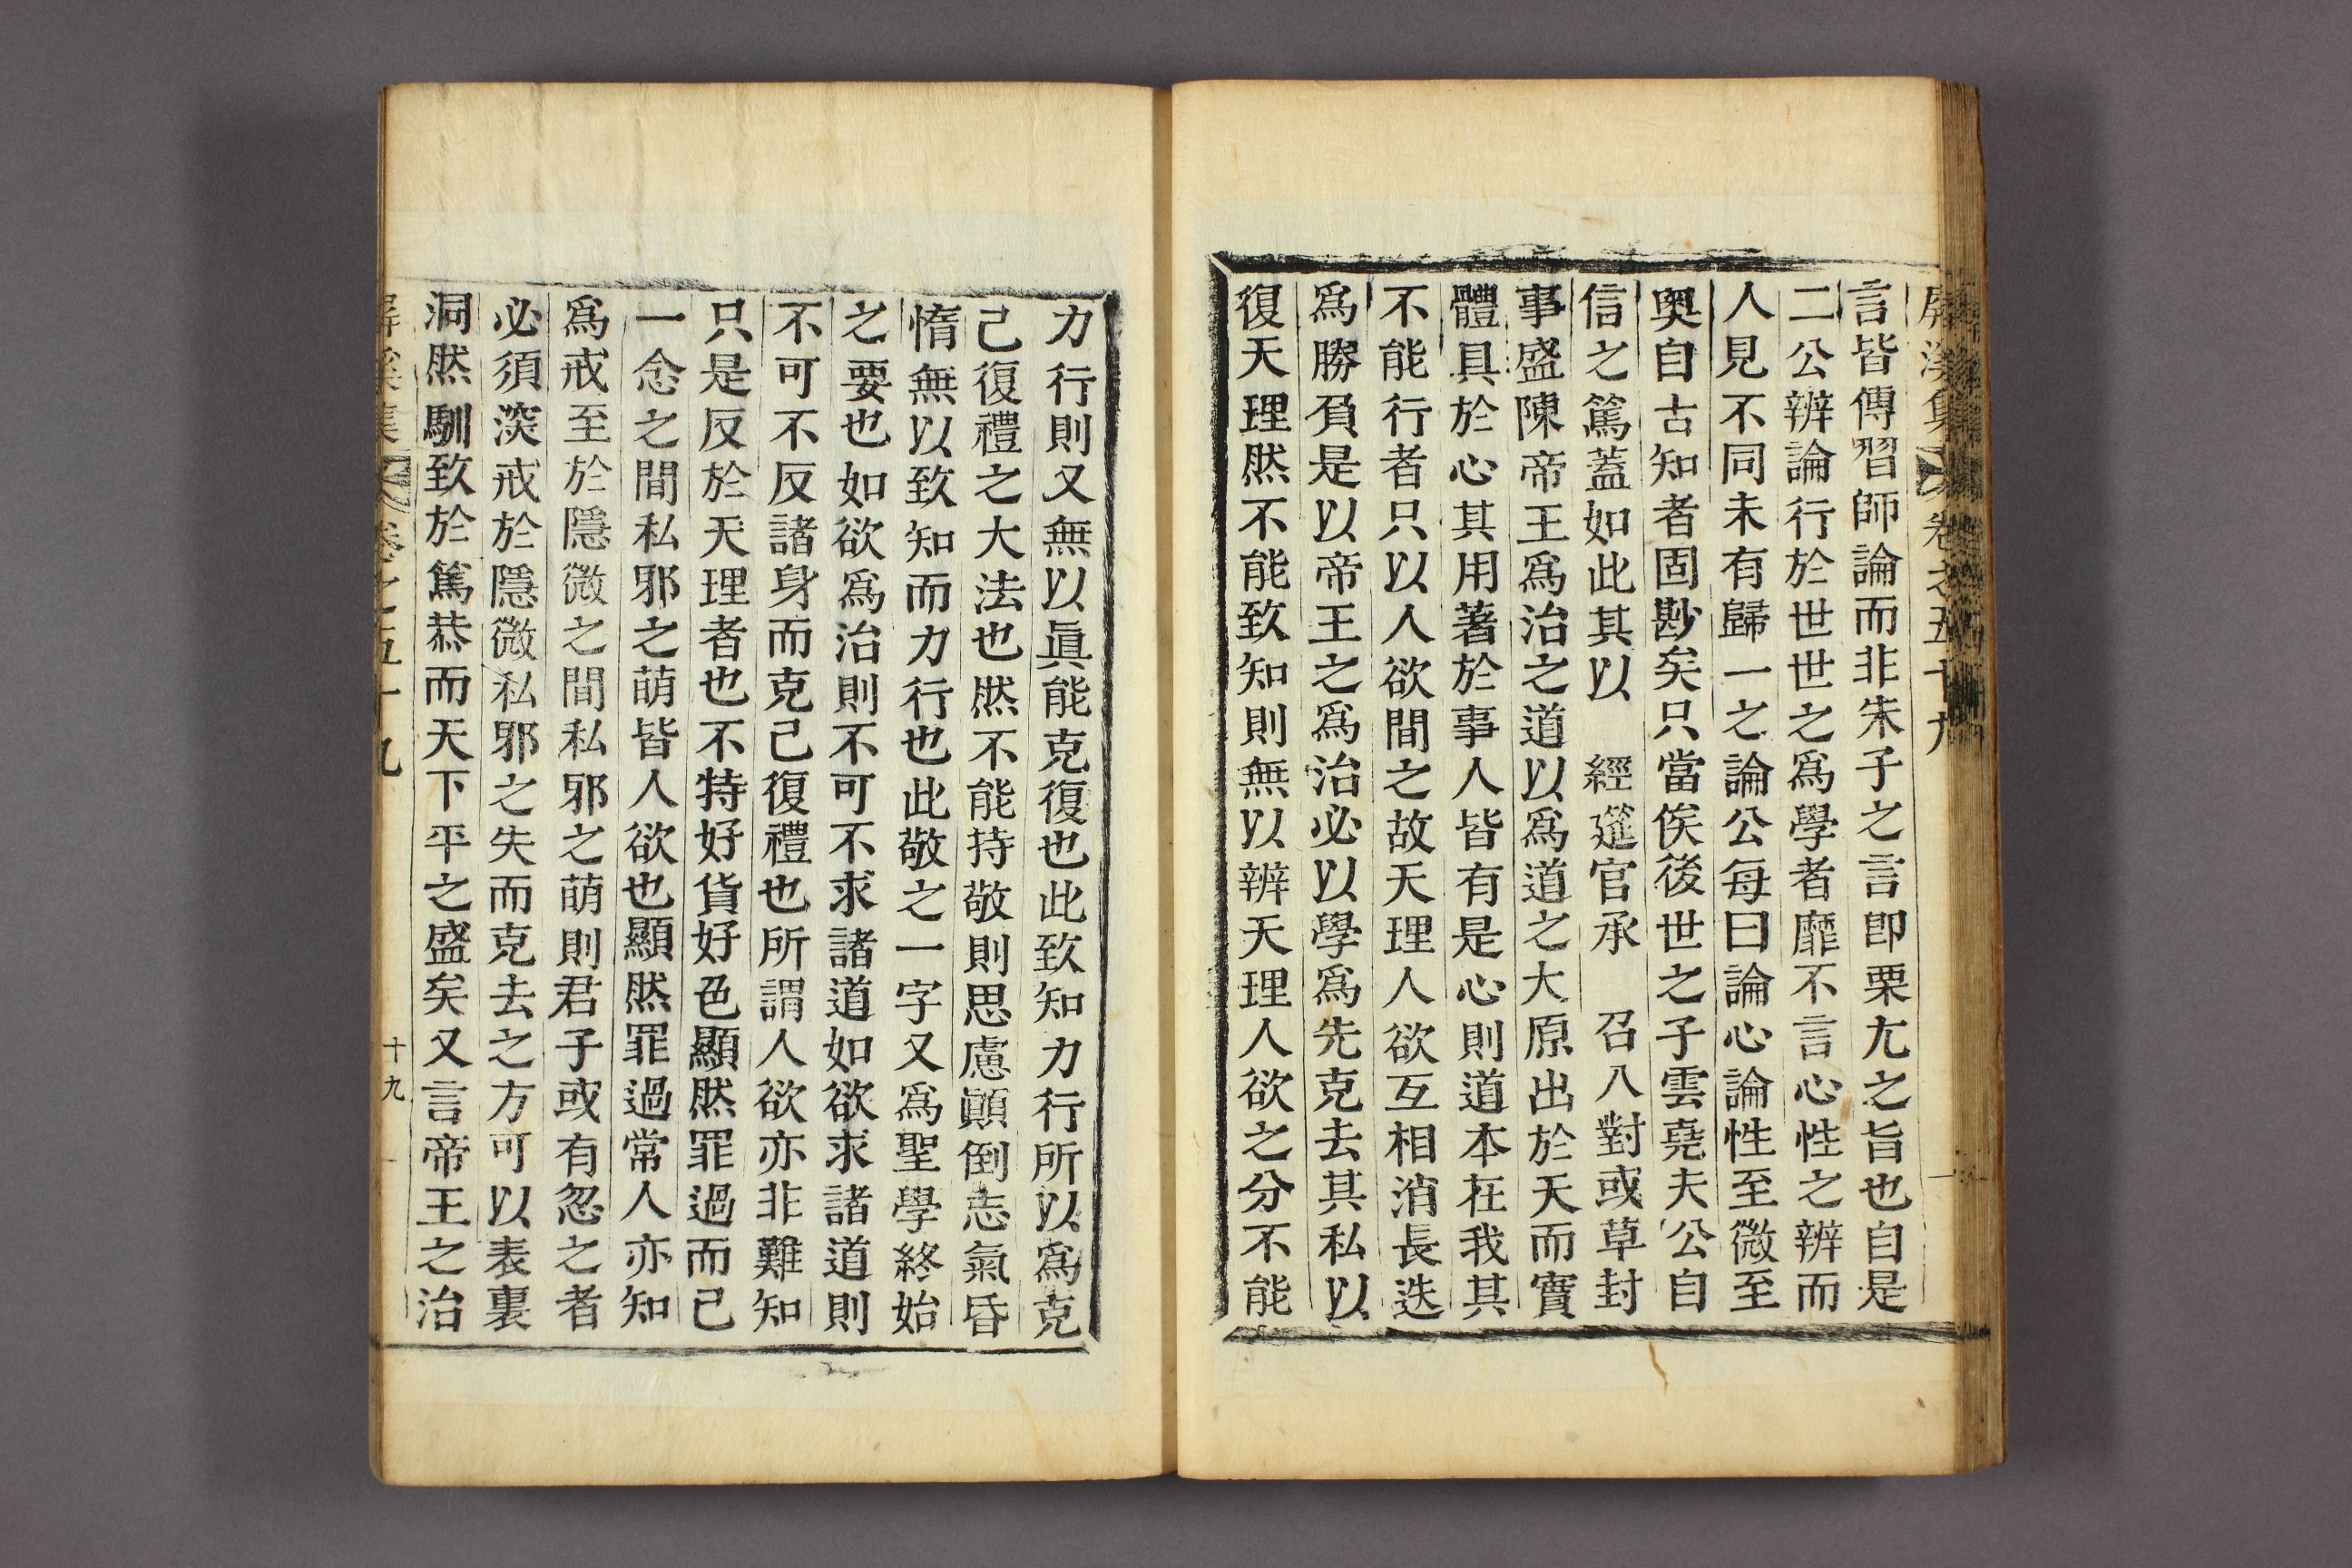 屛溪集 卷之五十九
言皆傳習師論而非朱子之言卽栗尤之旨也自是
二公辨論行於世世之爲學者靡不言心性之辨而
人見不同未有歸一之論公每曰論心論性至微至
奧自古知者固尠矣只當俟後世之子雲堯夫公自
信之篤蓋如此其以 經筵官承 召入對或草封
事盛陳帝王爲治之道以爲道之大原出於天而實
體具於心其用著於事人皆有是心則道本在我其
不能行者只以人欲間之故天理人欲互相消長迭
爲勝負是以帝王之爲治必以學爲先克去其私以
復天理然不能致知則無以辨天理人欲之分不能
力行則又無以眞能克復也此致知力行所以爲克
己復禮之大法也然不能持敬則思慮顚倒志氣昏
惰無以致知而力行也此敬之一字又爲聖學終始
之要也如欲爲治則不可不求諸道如欲求諸道則
不可不反諸身而克己復禮也所謂人欲亦非難知
只是反於天理者也不特好貨好色顯然罪過而已
一念之間私邪之萌皆人欲也顯然罪過常人亦知
爲戒至於隱微之間私邪之萌則君子或有忽之者
必須深戒於隱微私邪之失而克去之方可以表裏
洞然馴致於篤恭而天下平之盛矣又言帝王之治
屛溪集 卷之五十九 十九